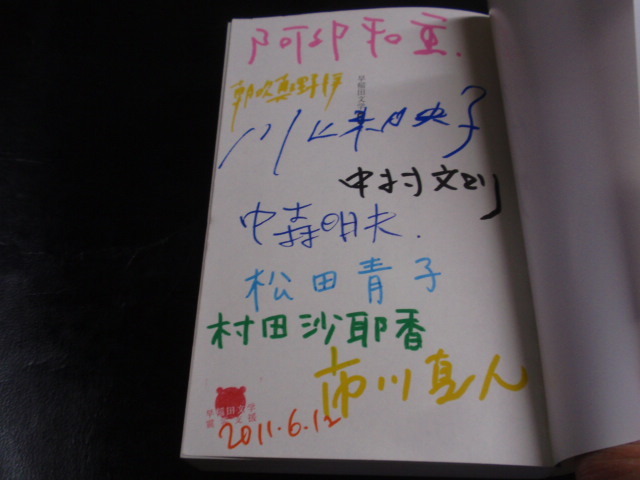 阿部和重.
早稲田文学
朝吹真理子
川上未映子
中村文則
中森明夫.
松田青子
村田沙耶香
市川真人
早稲田文学
2011.6.12